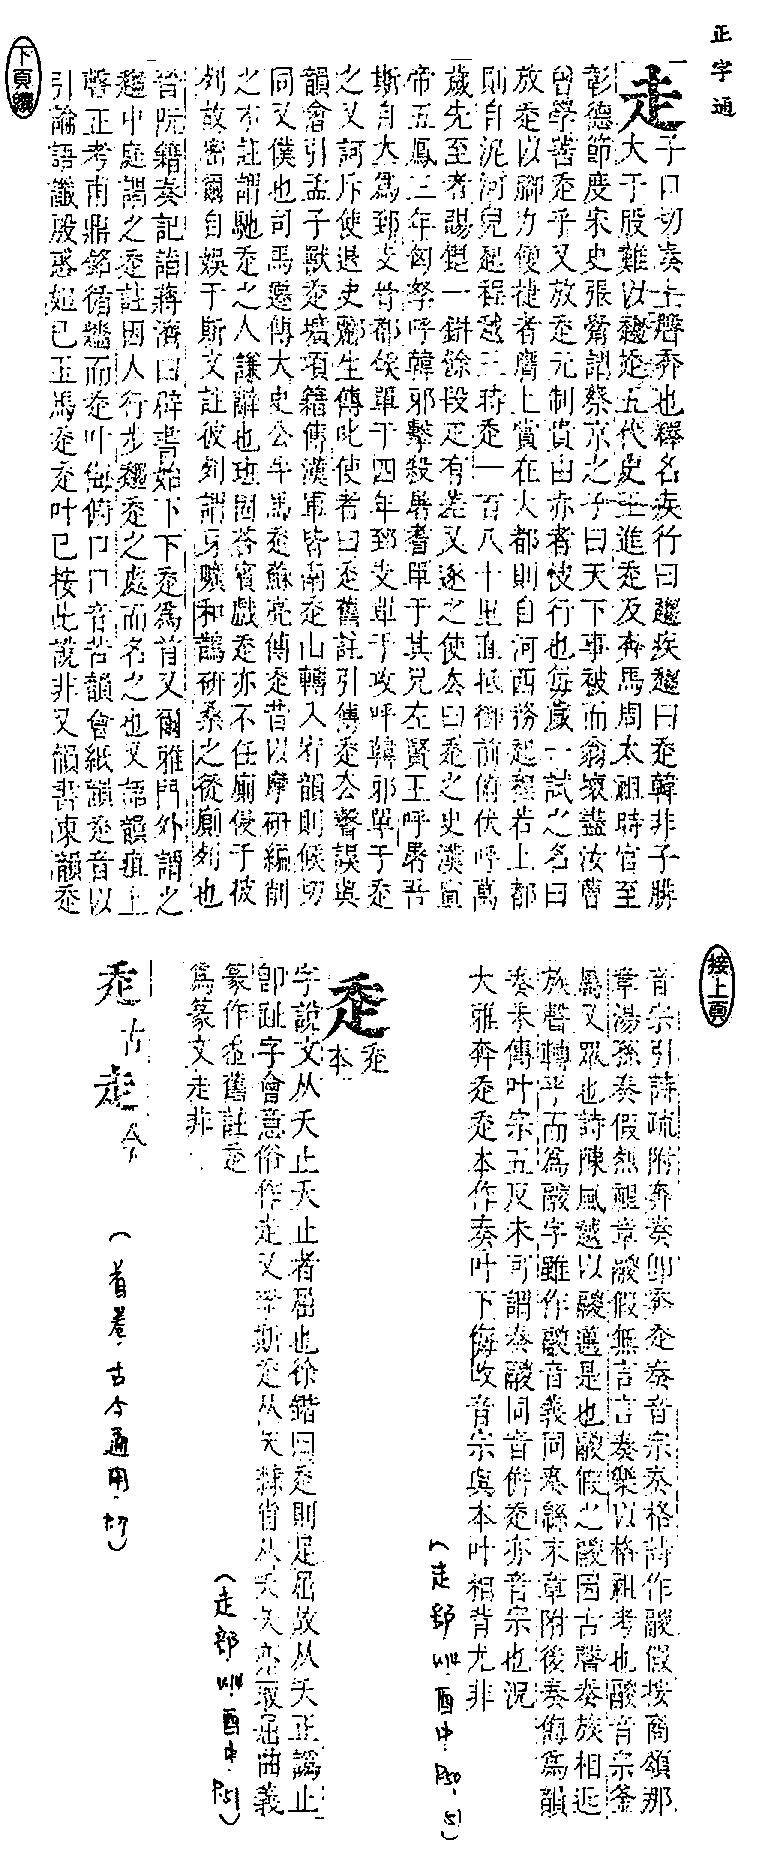 正字通
走
子口切奏上聲奔也釋名疾行曰趨疾趨曰𧺆韓非子勝
大于股難以趨𧺆五代史王進𧺆及奔馬周太祖時官至
彰德節度宋史張觷謂蔡京之子曰天下事被而翁壞盡汝曹
曾學善𧺆乎又放𧺆元制貴由赤者快行也每歲一試之名曰
放𧺆以腳力便捷者膺上賞在大都則自河西務起程若上都
則自泥河兒起程越三時𧺆一百八十里直抵御前俯伏呼萬
歲先至者賜銀一餅餘段疋有差又逐之使去曰𧺆之史漢宣
帝五鳳三年匈奴呼韓邪擊殺屠耆單于其兄左賢王呼屠吾
斯自立為郅支骨都侯單于四年郅支單于攻呼韓邪單于𧺆
之又訶斥使退史酈生傳叱使者曰𧺆舊註引傳𧺆公聲誤與
韻會引孟子獸𧺆壙項籍傳漢軍皆南𧺆山轉入宥韻則候切
同又僕也司馬遷傳大史公牛馬𧺆蘇亮傳𧺆昔以摩研編削
之才註謂馳𧺆之人謙辭也班固荅賓戲𧺆亦不任廁伎于彼
列故密爾自娛于斯文註彼列謂牙曠和鵲研桑之從廁列也
晉阮籍奏記詣蔣濟曰辟書始下下𧺆為首又爾雅門外謂之
趨中庭謂之𧺆註因人行步趨𧺆之處而名之也又語韻疽上
聲正考甫鼎銘循牆而𧺆叶傴俯口口音苦韻會紙韻𧺆音以
引論語讖殷惑妲己玉馬𧺆𧺆叶己按此說非又韻書凍韻𧺆
下頁續
接上頁
音宗引詩疏附奔奏卽奔𧺆奏音宗奏格詩作鬷假按商頌那
章湯孫奏假烈祖章鬷假無言言奏樂以格祖考也鬷音宗釜
屬又眾也詩陳風越以鬷邁是也鬷假之鬷因古聲奏族相近
族聲轉平而為鬷字雖作鬷音義同奏緜末章附後奏侮為韻
奏本傳叶宗五反未可謂奏鬷同音併𧺆亦音宗也況
大雅奔𧺆𧺆本作奏叶下侮改音宗與本叶相背尤非
(走部.酉中.P.50.51)
𧺆
𧺆本
字說文从夭止夭止者屈也徐鍇曰𧺆則足屈故从夭正譌止
卽趾字會意俗作走又李斯𧺆从犬
篆作𧺆舊註𧺆
為篆文走非
(走部.酉中.P.51)
𧺆古走今
(首卷.古今通用.)